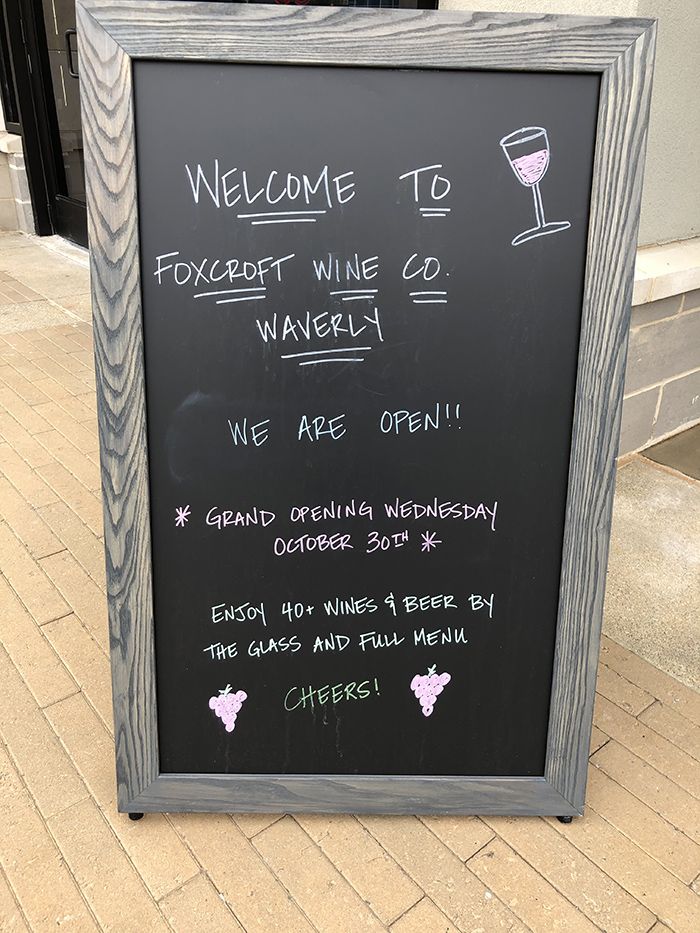 WELCOME TO
FOXCROFT WINE CO.
WAVERLY
WE ARE OPEN!!
* GRAND OPENING WEDNESDAY
OCTOBER 30TH *
ENJOY 40+ WINES & BEER BY
THE GLASS AND FULL MENU
CHEERS!